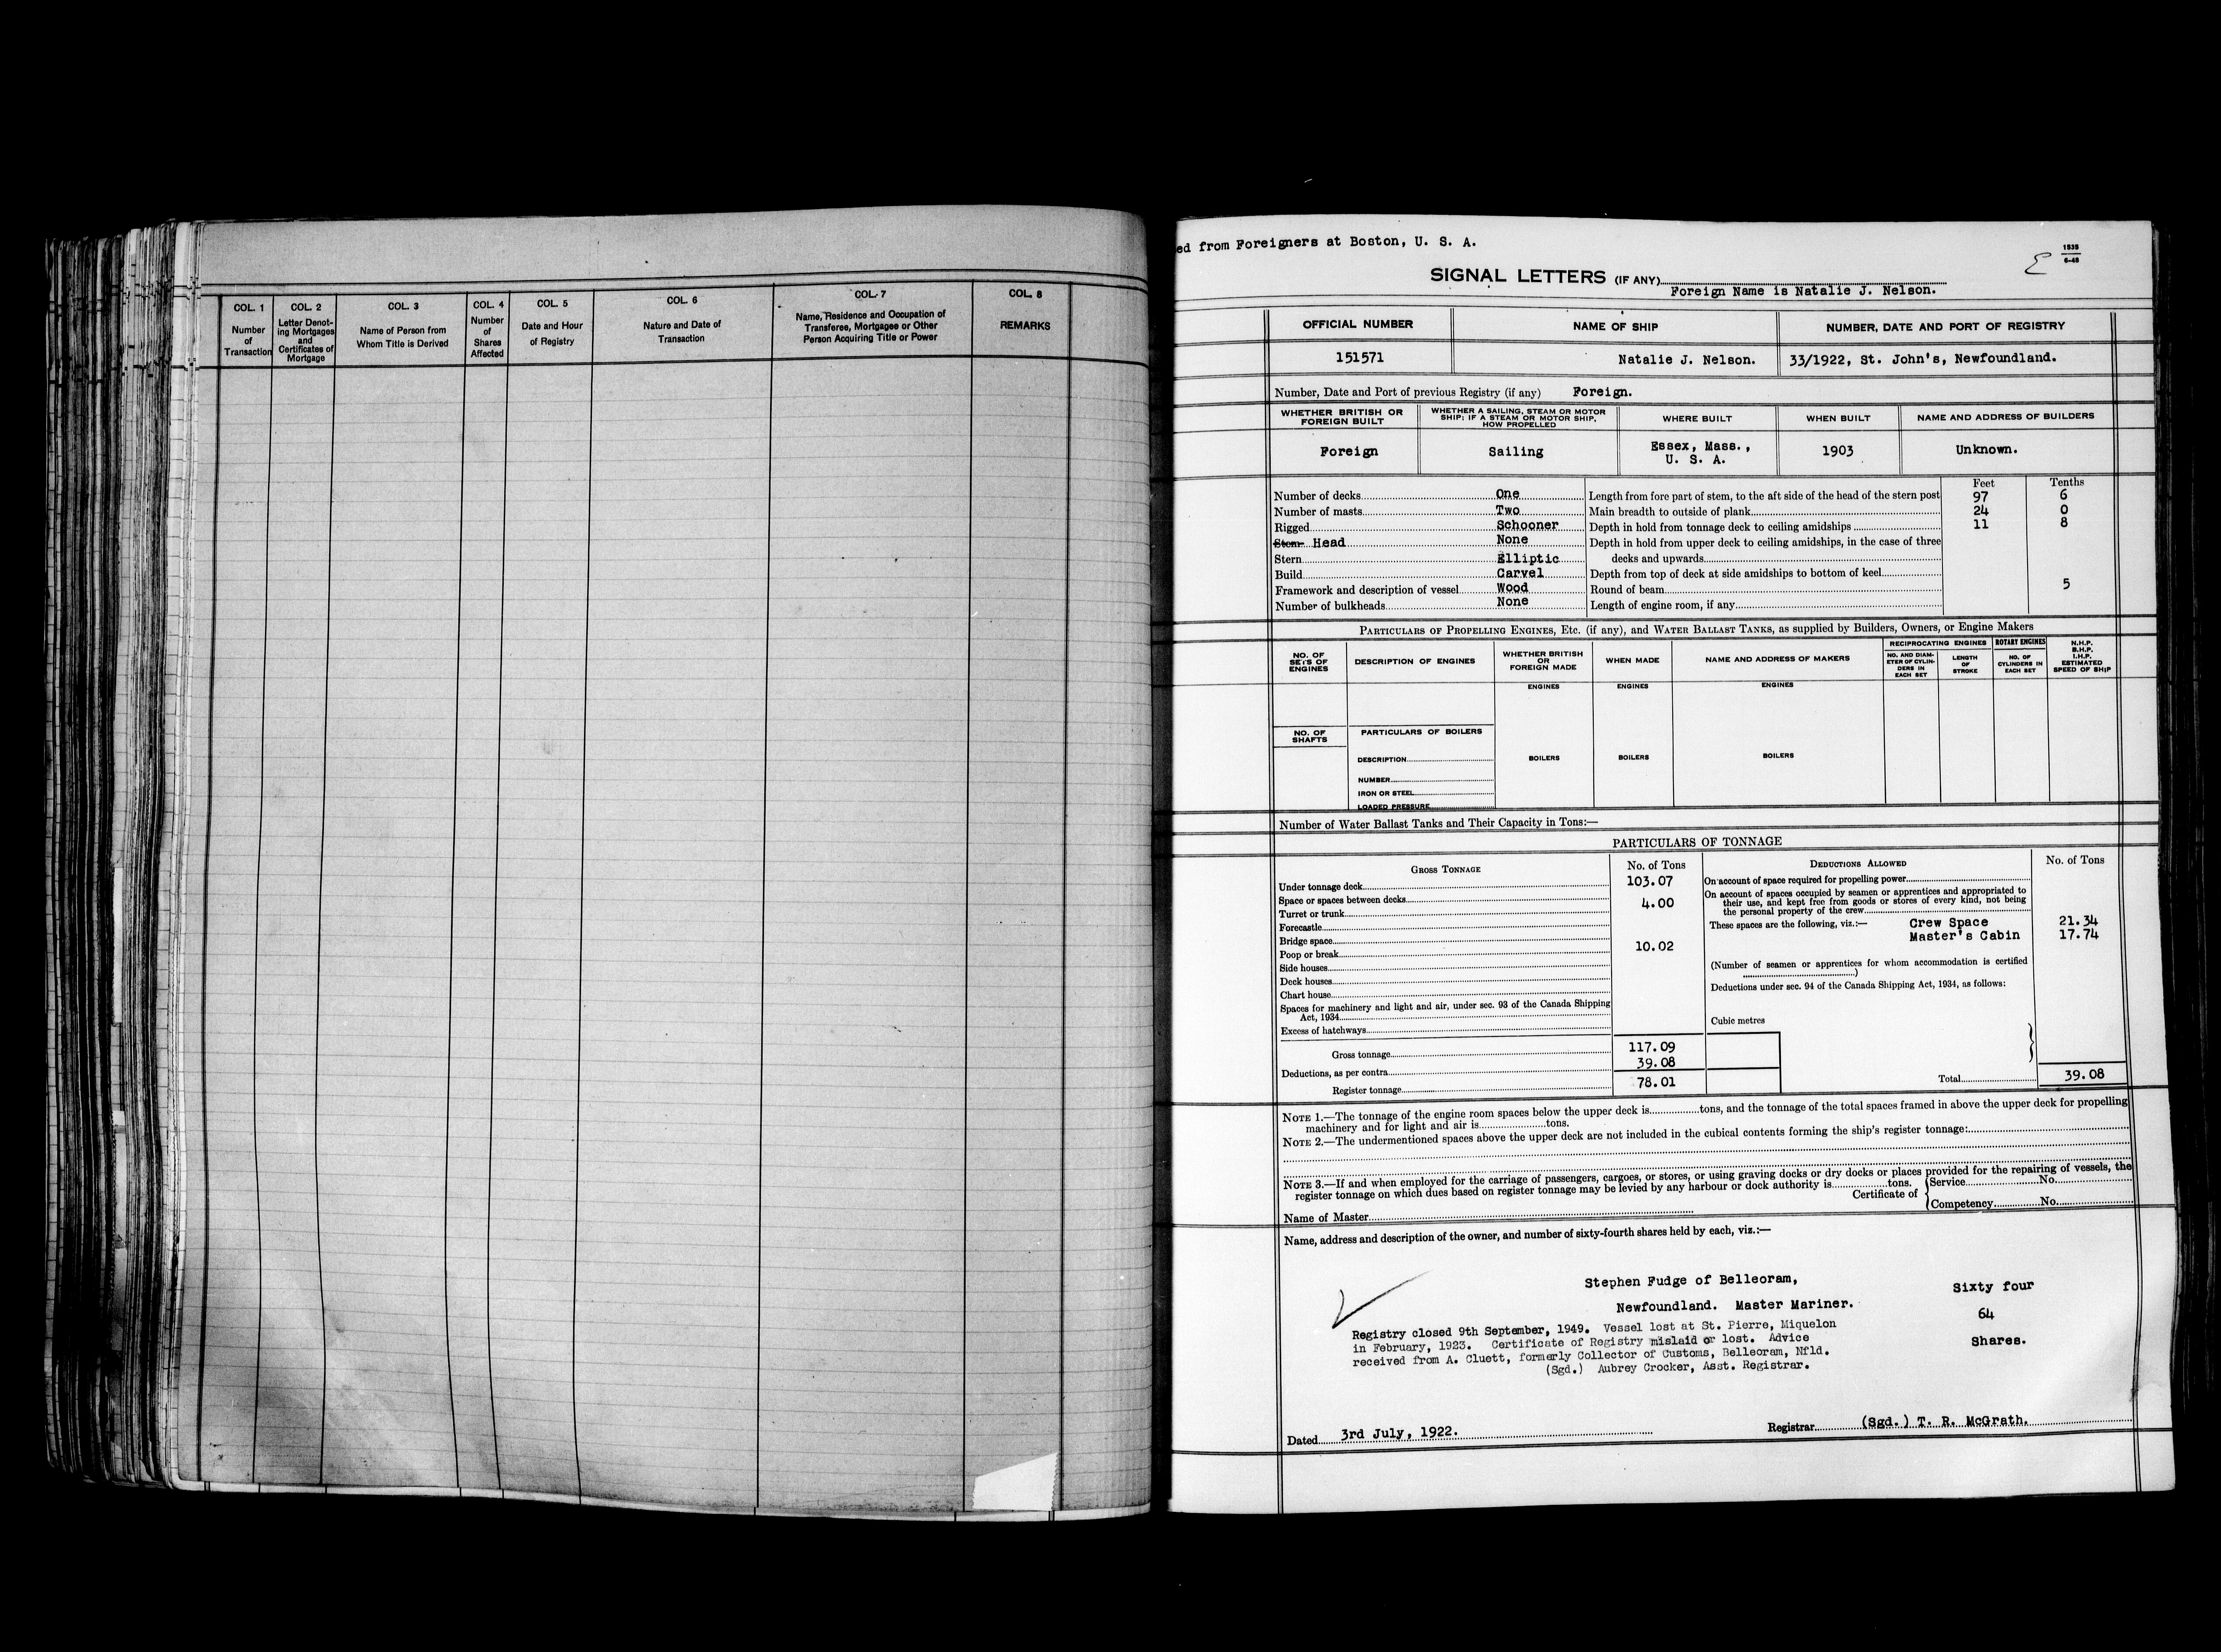 COL. 1
Number
of
Transaction
COL. 2
Letter Denot-
ing Mortgages
and
Certificates of
Mortgage
COL. 3
Name of Person from
Whom Title is Derived
COL. 4
Number
of
Shares
Affected
COL. 5
Date and Hour
of Registry
COL. 6
Nature and Date of
Transaction
COL. 7
Name, Residence and Occupation of
Transferee, Mortgagee or Other
Person Acquiring Title or Power
COL. 8
REMARKS
ed from Foreigners at Boston, U. S. A.
1535
6-45
SIGNAL LETTERS (IF ANY)
Foreign Name is Natalie J. Nelson.
OFFICIAL NUMBER
NAME OF SHIP
NUMBER, DATE AND PORT OF REGISTRY
151571
Natalie J. Nelson.
33/1922, St. John's, Newfoundland.
Number, Date and Port of previous Registry (if any) Foreign.
WHETHER BRITISH OR
FOREIGN BUILT
WHETHER A SAILING, STEAM OR MOTOR
SHIP; IF A STEAM OR MOTOR SHIP,
HOW PROPELLED
WHERE BUILT
WHEN BUILT
NAME AND ADDRESS OF BUILDERS
Foreign
Sailing
Essex, Mass.,
U. S. A.
1903
Unknown.
Feet Tenths
Number of decks One
Number of masts Two
Rigged Schooner
Stem Head None
Stern Elliptic
Build Carvel
Framework and description of vessel Wood
Number of bulkheads None
Length from fore part of stem, to the aft side of the head of the stern post 97 6
Main breadth to outside of plank 24 0
Depth in hold from tonnage deck to ceiling amidships 11 8
Depth in hold from upper deck to ceiling amidships, in the case of three
decks and upwards
Depth from top of deck at side amidships to bottom of keel
Round of beam 5
Length of engine room, if any
PARTICULARS OF PROPELLING ENGINES, ETC. (if any), and WATER BALLAST TANKS, as supplied by Builders, Owners, or Engine Makers
NO. OF
SETS OF
ENGINES
DESCRIPTION OF ENGINES
WHETHER BRITISH
OR
FOREIGN MADE
WHEN MADE
NAME AND ADDRESS OF MAKERS
RECIPROCATING ENGINES
NO. AND DIAM-
ETER OF CYLIN-
DERS IN
EACH SET
LENGTH
OF
STROKE
ROTARY ENGINES
NO. OF
CYLINDERS IN
EACH SET
N.H.P.
B.H.P.
I.H.P.
ESTIMATED
SPEED OF SHIP
ENGINES
ENGINES
ENGINES
NO. OF
SHAFTS
PARTICULARS OF BOILERS
DESCRIPTION
BOILERS
BOILERS
BOILERS
NUMBER
IRON OR STEEL
LOADED PRESSURE
Number of Water Ballast Tanks and Their Capacity in Tons:—
PARTICULARS OF TONNAGE
GROSS TONNAGE
No. of Tons
Under tonnage deck 103.07
Space or spaces between decks
4.00
Turret or trunk
Forecastle
Bridge space
10.02
Poop or break
Side houses
Deck houses
Chart house
Spaces for machinery and light and air, under sec. 93 of the Canada Shipping
Act, 1934
Excess of hatchways
Gross tonnage 117.09
Deductions, as per contra 39.08
Register tonnage 78.01
DEDUCTIONS ALLOWED
No. of Tons
On account of space required for propelling power
On account of spaces occupied by seamen or apprentices and appropriated to
their use, and kept free from goods or stores of every kind, not being
the personal property of the crew
These spaces are the following, viz.:— Crew Space 21.34
Master's Cabin 17.74
(Number of seamen or apprentices for whom accommodation is certified
)
Deductions under sec. 94 of the Canada Shipping Act, 1934, as follows:
Cubic metres
Total 39.08
NOTE 1.—The tonnage of the engine room spaces below the upper deck is tons, and the tonnage of the total spaces framed in above the upper deck for propelling
machinery and for light and air is tons.
NOTE 2.—The undermentioned spaces above the upper deck are not included in the cubical contents forming the ship's register tonnage:
NOTE 3.—If and when employed for the carriage of passengers, cargoes, or stores, or using graving docks or dry docks or places provided for the repairing of vessels, the
register tonnage on which dues based on register tonnage may be levied by any harbour or dock authority is tons.
Certificate of
Service No.
Competency No.
Name of Master
Name, address and description of the owner, and number of sixty-fourth shares held by each, viz.:—
Stephen Fudge of Belleoram,
Newfoundland. Master Mariner.
Sixty four
64
Shares.
Registry closed 9th September, 1949. Vessel lost at St. Pierre, Miquelon
in February, 1923. Certificate of Registry mislaid or lost. Advice
received from A. Cluett, formerly Collector of Customs, Belleoram, Nfld.
(Sgd.) Aubrey Crocker, Asst. Registrar.
Dated 3rd July, 1922.
Registrar (Sgd.) T. R. McGrath.